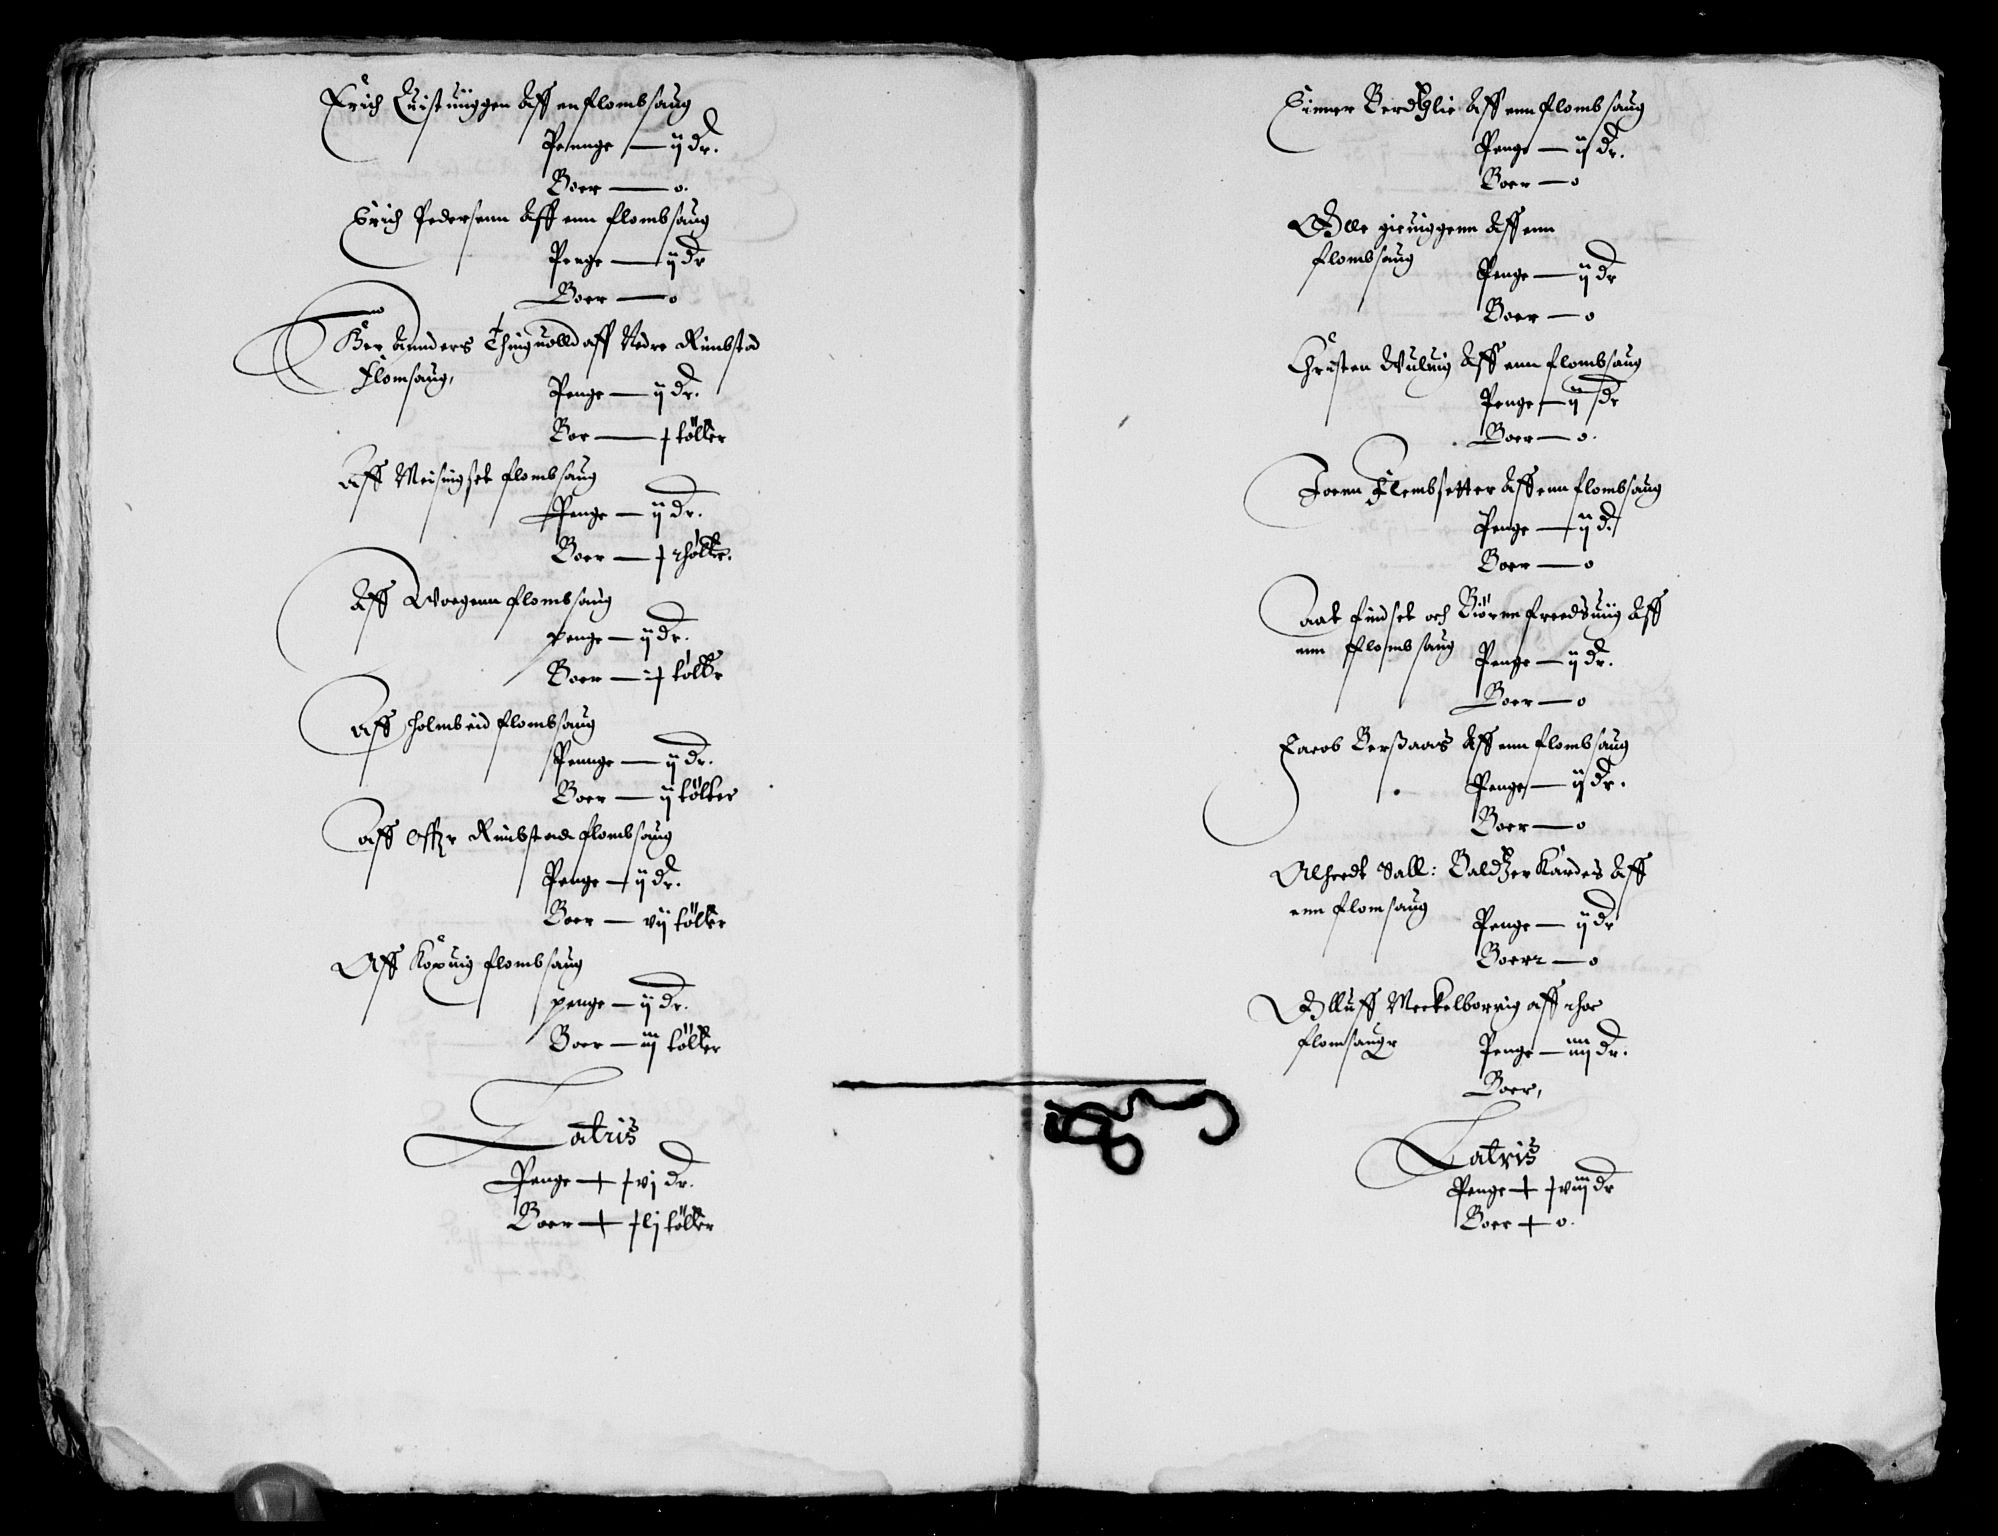 Erich Quistuiggen Aff en flombsaug
Penge — ij dr.
Boer — o.
Erich Pedersenn Aff enn flombsaug
Penge — ij dr
Boer — o
Her Annders Thinguolld aff Nedre Rimbstad
Flomsaug,
Penge — ij dr.
Bor — j tølter
Aff Meisingset flombsaug
Penge — ij dr.
Boer — j thølter.
Aff Woegenn flombsaug
penge — ij dr.
Boer — j tølter
Aff holmbeid flombsaug
Pennge — ij dr.
Boer — ij tølter
Aff Øffr Rimbstade flombsaug
Penge — ij dr.
Boer — vij tølter
Aff Koxuig flombsaug
penge — ij dr.
Boer — iij tølter
Latris
Penge + jvj dr.
Boer + tølter
Einer flombsaug
Penge — ij dr.
Boer — o
Olle gieuiggenn Aff enn
flombsaug
Penge — ij dr
Boer — o
Christen Wuluig Aff enn flombsaug
Penge — ij dr
Boer — o.
Joenn Flembsetter Aff enn flombsaug
Penge — ij dr
Boer — o
Aat findset och Biørnn freedsuig Aff
enn flombsaug
Penge — ij dr.
Boer — o
Jacob Aff enn flombsaug
Penge — ij dr.
Boer — o
Alheedt Sall: Baldtzer Kardes Aff
enn flomsaug
Penge — ij dr
Boer — o
Olluff Meckelborrig aff thoe
flomsauger
Penge — iiij dr.
Boer,
Latris
Penge + jviij dr
Boer + o.